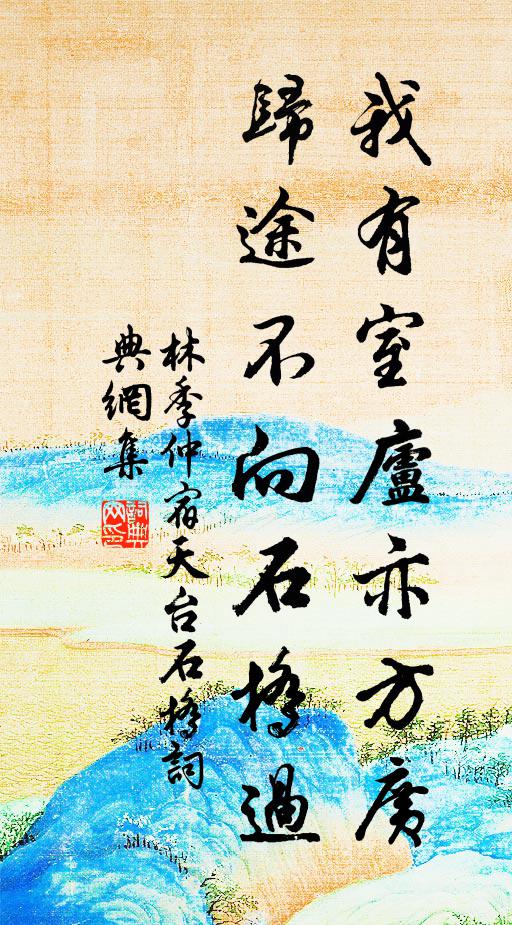 我有室廬亦方廣
歸途不向石橋過
林季仲宿天台石橋詞
典網集
詞典
网印